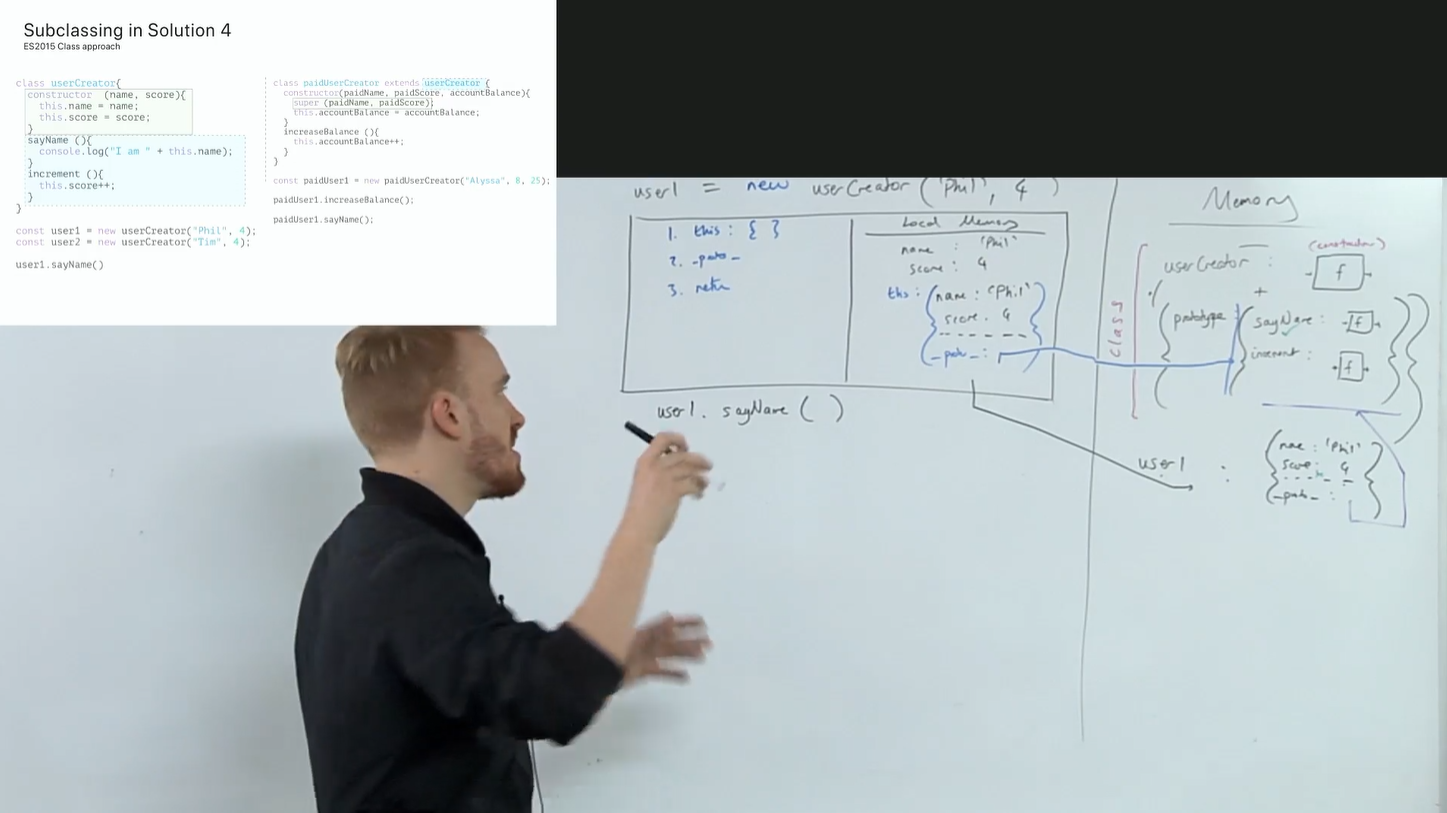 Subclassing in Solution 4
ES2015 Class approach
class userCreator{
constructor (name, score){
this.name = name;
this.score = score;
}
sayName (){
console.log("I am " + this.name);
}
increment (){
this.score++;
}
}
const user1 = new userCreator("Phil", 4);
const user2 = new userCreator("Tim", 4);
user1.sayName()
class paidUserCreator extends userCreator {
constructor(paidName, paidScore, accountBalance){
super (paidName, paidScore);
this.accountBalance = accountBalance;
}
increaseBalance (){
this.accountBalance++;
}
}
const paidUser1 = new paidUserCreator("Alyssa", 8, 25);
paidUser1.increaseBalance();
paidUser1.sayName();
user1 = new userCreator ('Phil', 4 )
1. this : { }
2. _proto_
3. retu
Local Memory
name : 'Phil'
score : 4
this : { name : 'Phil'
score . 4
_proto_ : }
user1. sayName ( )
Memory
(constructor)
userCreator : f
+
class
prototype : { sayName : f
increment : f
user1 : { name : 'Phil'
score : 4
_proto_ : }